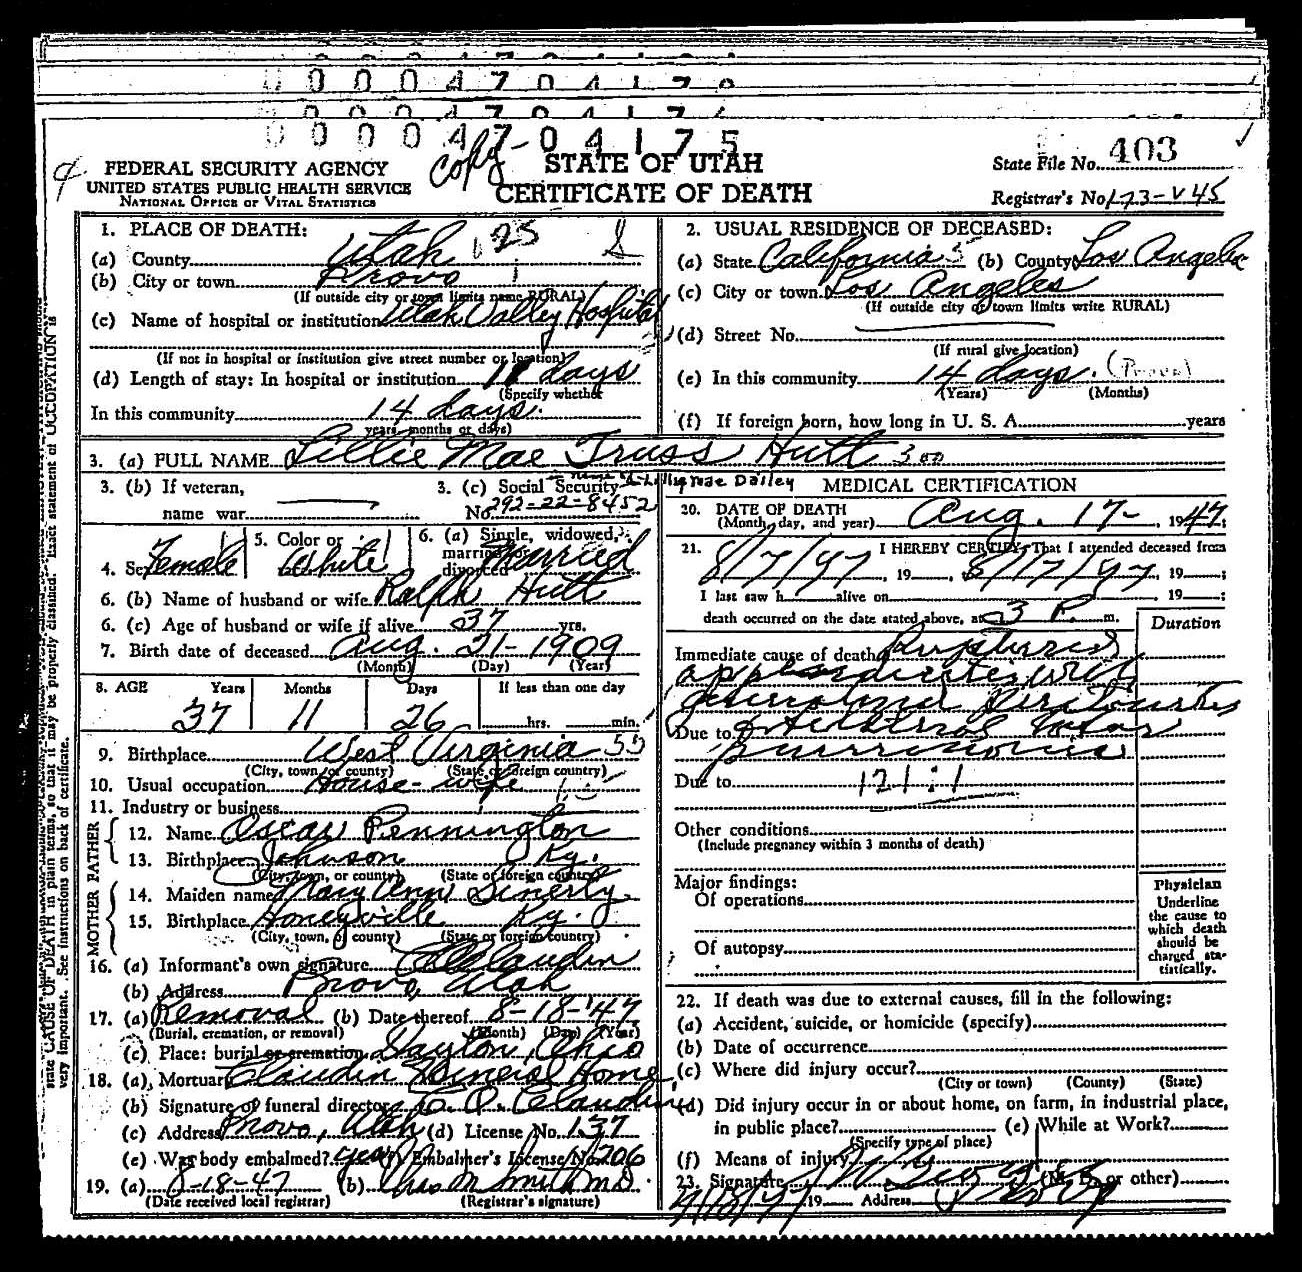 0 0 0 4 7 0 4 1 7 5
copy-
FEDERAL SECURITY AGENCY
UNITED STATES PUBLIC HEALTH SERVICE
NATIONAL OFFICE OF VITAL STATISTICS
STATE OF UTAH
CERTIFICATE OF DEATH
State File No. 403
Registrar's No. 173-V45
1. PLACE OF DEATH:
(a) County Utah
(b) City or town Provo
(If outside city or town limits name RURAL)
(c) Name of hospital or institution Utah Valley Hospital
(If not in hospital or institution give street number or location)
(d) Length of stay: In hospital or institution 11 days
(Specify whether
In this community 14 days.
years, months or days)
2. USUAL RESIDENCE OF DECEASED:
(a) State California (b) County Los Angeles
(c) City or town Los Angeles
(If outside city or town limits write RURAL)
(d) Street No.
(If rural give location)
(e) In this community 14 days. (Provo)
(Years) (Months)
(f) If foreign born, how long in U. S. A. years
3. (a) FULL NAME Lillie Mae Truss Hutt
3. (b) If veteran,
name war
3. (c) Social Security
No. 292-22-8452
Mae Dailey
4. Sex Female
5. Color or
White
6. (a) Single, widowed,
married or
divorced Married
6. (b) Name of husband or wife Ralph Hutt
6. (c) Age of husband or wife if alive 37 yrs.
7. Birth date of deceased Aug. 21-1909
(Month) (Day) (Year)
8. AGE Years Months Days If less than one day
37 11 26 hrs. min.
9. Birthplace West Virginia
(City, town or county) (State or foreign country)
10. Usual occupation House-wife
11. Industry or business
FATHER
12. Name Oscar Pennington
13. Birthplace Johnson Ky.
(City, town, or county) (State or foreign country)
MOTHER
14. Maiden name Mary Ann
15. Birthplace Honeyville Ky.
(City, town, or county) (State or foreign country)
16. (a) Informant's own signature Claudin
(b) Address Provo, Utah
17. (a) Removal (b) Date thereof 8-18-'47
(Burial, cremation, or removal) (Month) (Day) (Year)
(c) Place: burial or cremation Dayton, Ohio
18. (a) Mortuary Claudin Funeral Home
(b) Signature of funeral director Claudin
(c) Address Provo, Utah (d) License No. 137
(e) Was body embalmed? yes (f) Embalmer's License No. 206
19. (a) 8-18-47 (b) Chas M Smith MD.
(Date received local registrar) (Registrar's signature)
MEDICAL CERTIFICATION
20. DATE OF DEATH
(Month, day, and year) Aug. 17- 1947;
21. I HEREBY CERTIFY, That I attended deceased from
8/7/47, 19 , 8/17/47, 19 ;
I last saw h alive on , 19 ;
death occurred on the date stated above, at 3 P. m.
Duration
Immediate cause of death Ruptured
appendicitis with
generalized Peritonitis
Due to Lobar
pneumonia
Due to 121:1
Other conditions
(Include pregnancy within 3 months of death)
Major findings:
Of operations
Of autopsy
Physician
Underline
the cause to
which death
should be
charged sta-
tistically.
22. If death was due to external causes, fill in the following:
(a) Accident, suicide, or homicide (specify)
(b) Date of occurrence
(c) Where did injury occur?
(City or town) (County) (State)
(d) Did injury occur in or about home, on farm, in industrial place,
in public place? (e) While at Work?
(Specify type of place)
(f) Means of injury
23. Signature (M. D. or other)
19 Address Provo
state CAUSE OF DEATH in plain terms, so that it may be properly classified. Exact statement of OCCUPATION is
very important. See instructions on back of certificate.